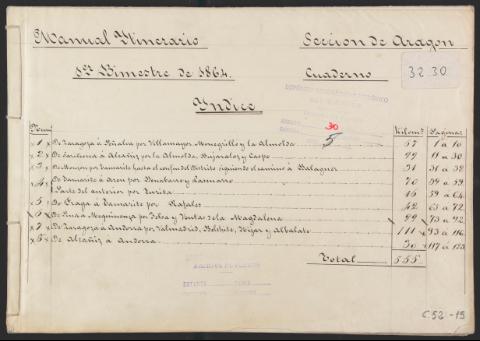 Manual Itinerario Seccion de Aragon
1er Bimestre de 1864. Cuaderno 32.30
30
5
Yndice
Kilom.s Paginas
1 De Zaragoza á Peñalva por Villamayor, Monegrillo y la Almolda 67 1 a 10
2 De Sariñena á Alcañiz por la Almolda, Bujaraloz y Caspe 99 11 a 30
3 De Monzon por Tamarite hasta el confin del Distrito siguiendo el camino á Balaguer 31 31 a 38
4 De Tamarite á Aren por Benabarre y 70 39 a 59
Parte del anterior por 16 59 a 64
5 De Fraga á Tamarite por 42 65 a 72
6 De á Mequinenza por y Ventas de la Magdalena 99 73 a 92
7 De Zaragoza á Andorra por Valmadrid, Belchite, Hijar y Albalate 111 93 a 116
8 De Alcañiz á Andorra 30 117 a 123
Total 555
C 52-19